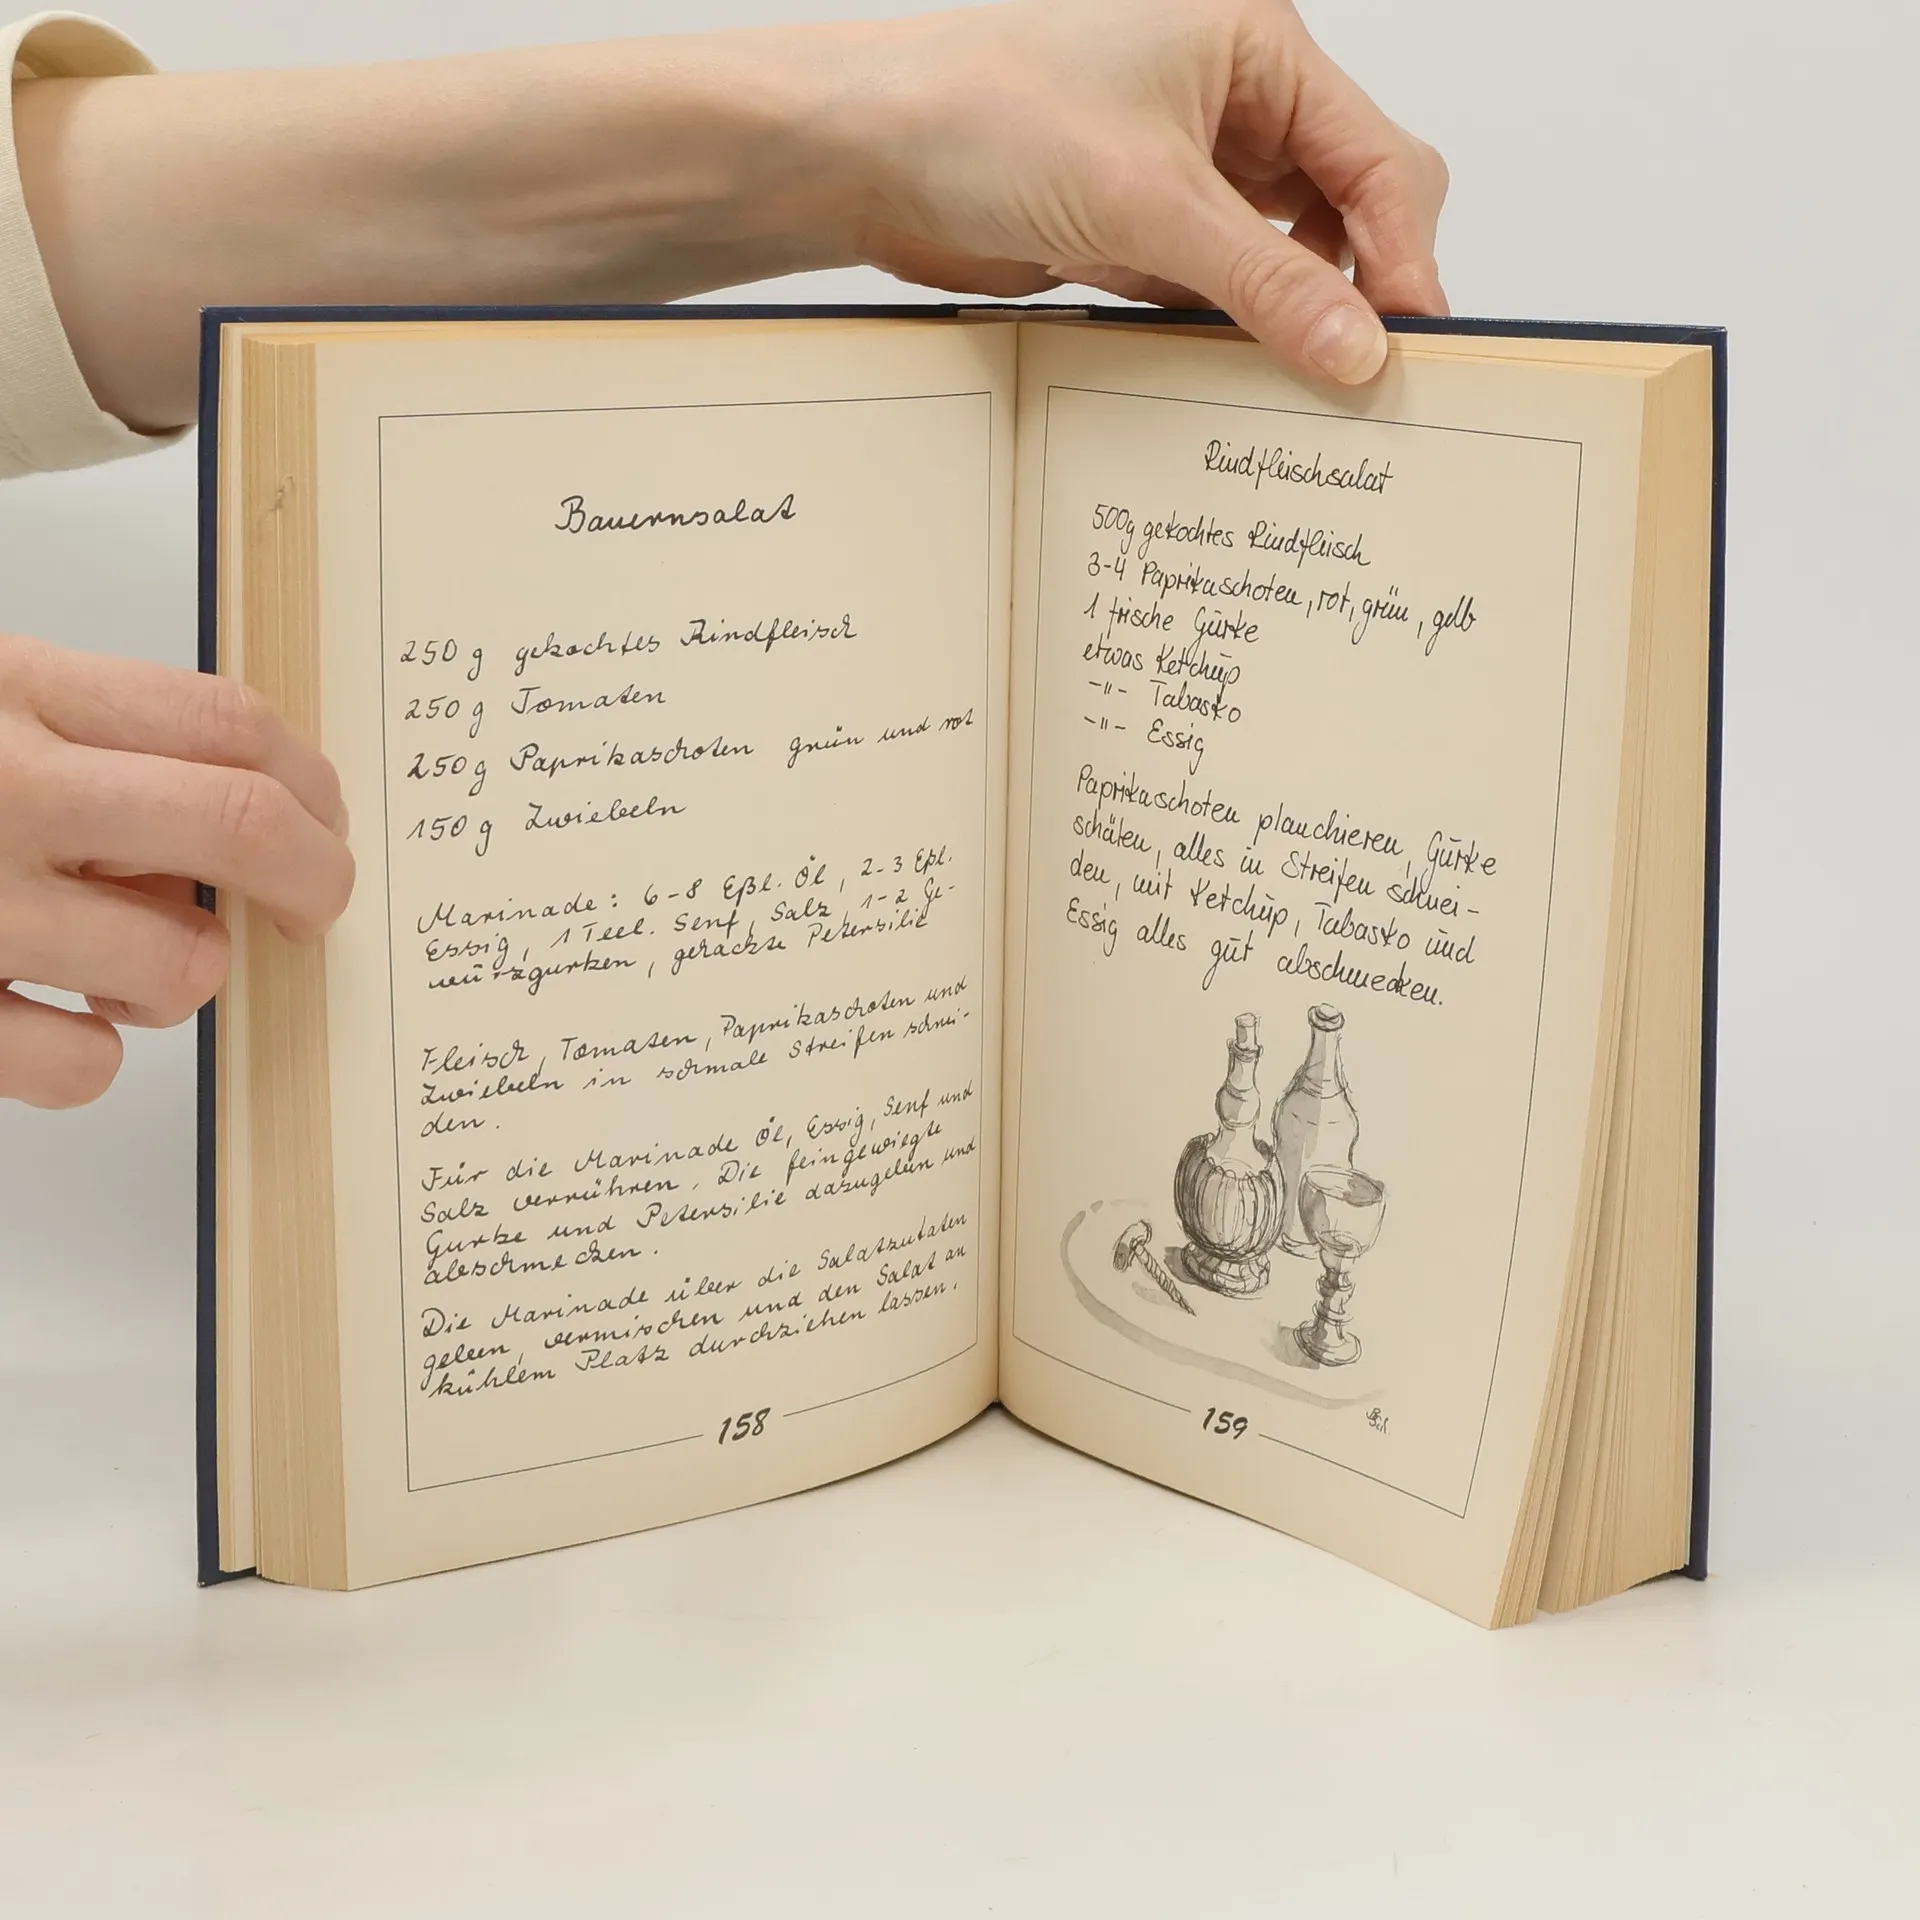 Bauernsalat
250 g gekochtes Rindfleisch
250 g Tomaten
250 g Paprikaschoten grün und rot
150 g Zwiebeln
Marinade: 6-8 Eßl. Öl, 2-3 Eßl.
Essig, 1 Teel. Senf, Salz, 1-2 Ge-
würzgurken, gehackte Petersilie
Fleisch, Tomaten, Paprikaschoten und
Zwiebeln in schmale Streifen schnei-
den.
Für die Marinade Öl, Essig, Senf und
Salz verrühren. Die feingewiegte
Gurke und Petersilie dazugeben und
abschmecken.
Die Marinade über die Salatzutaten
geben, vermischen und den Salat an
kühlem Platz durchziehen lassen.
158
Rindfleischsalat
500g gekochtes Rindfleisch
3-4 Paprikaschoten, rot, grün, gelb
1 frische Gurke
etwas Ketchup
-"- Tabasko
-"- Essig
Paprikaschoten planchieren, Gurke
schälen, alles in Streifen schnei-
den, mit Ketchup, Tabasko und
Essig alles gut abschmecken.
159